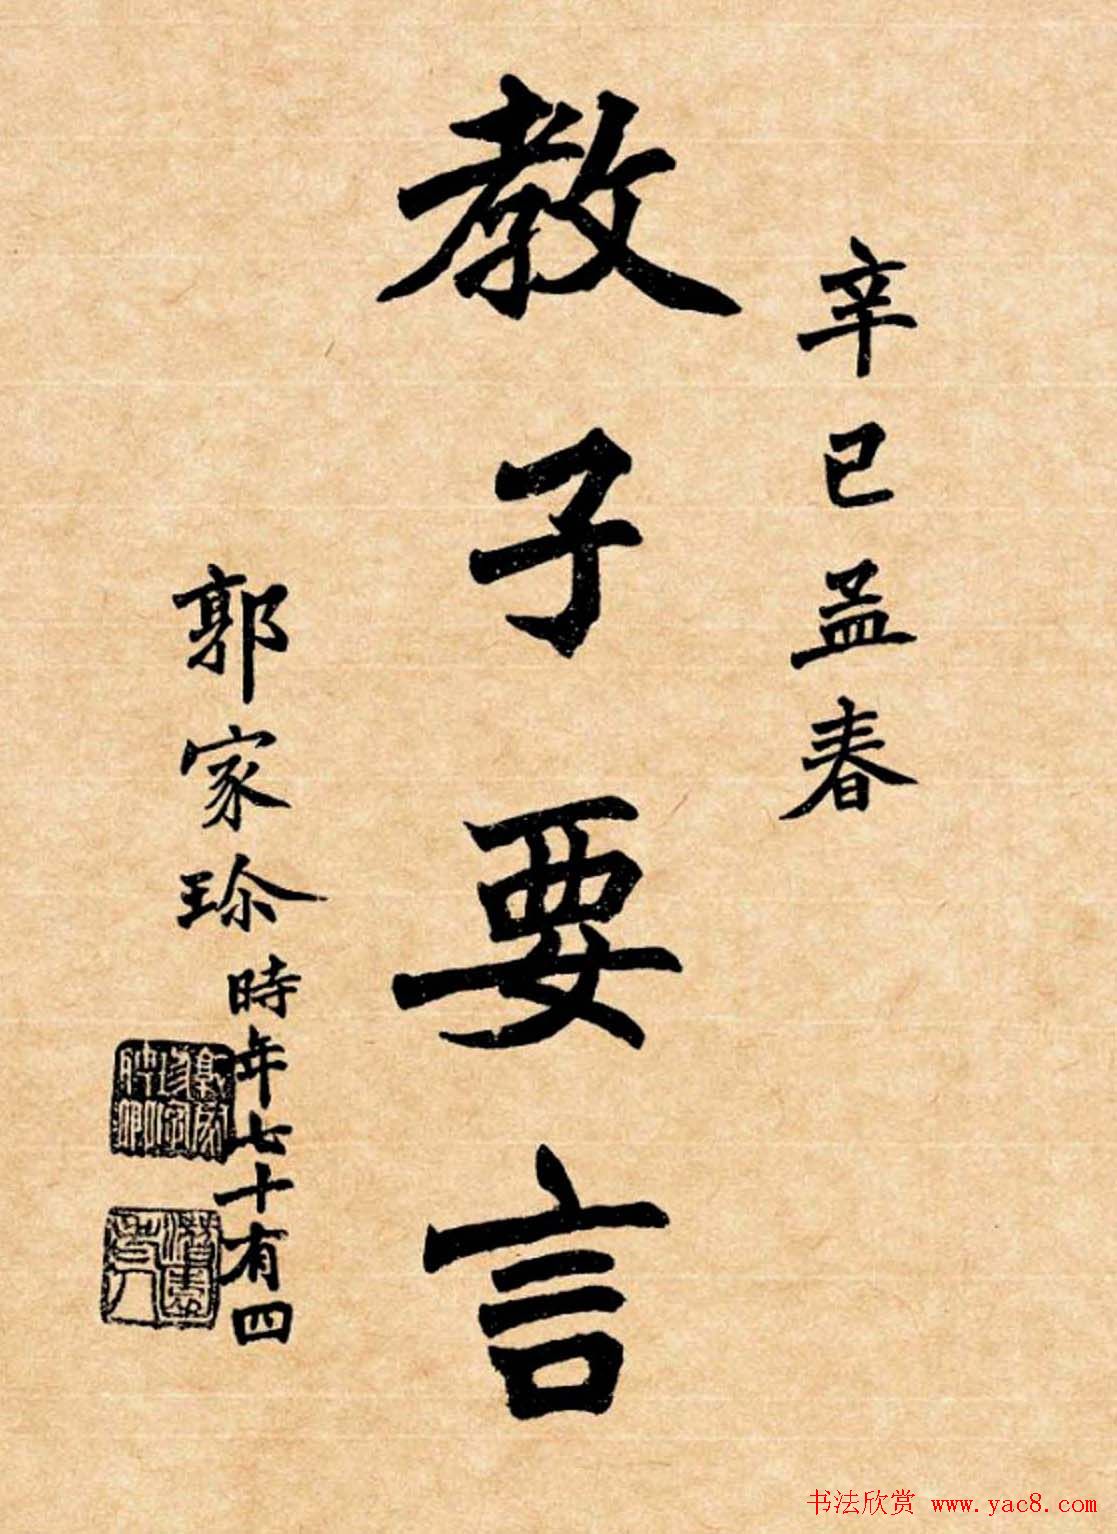 辛巳孟春
教子要言
郭家珎時年七十有四
书法欣赏 www.yac8.com